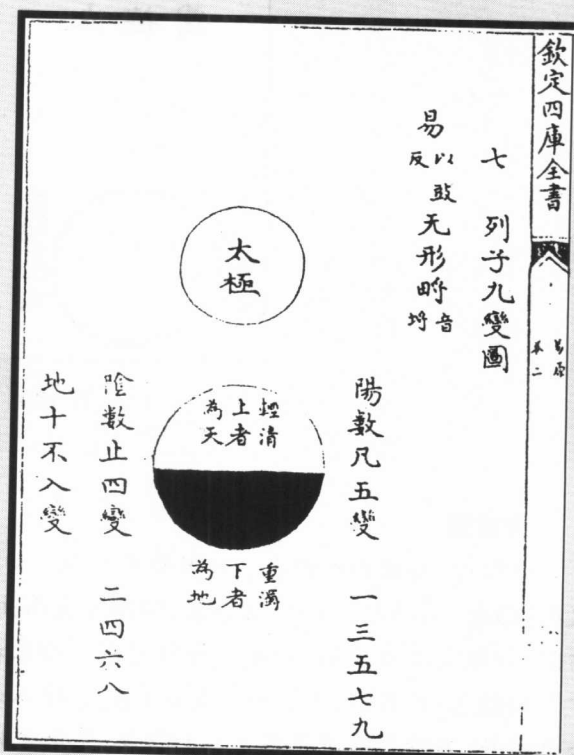 欽定四庫全書
易原
卷二
七 列子九變圖
易以豉反无形畤音埒
陽數凡五變 一三五七九
太極
輕清
上者
為天
重濁
下者
為地
陰數止四變 二四六八
地十不入變